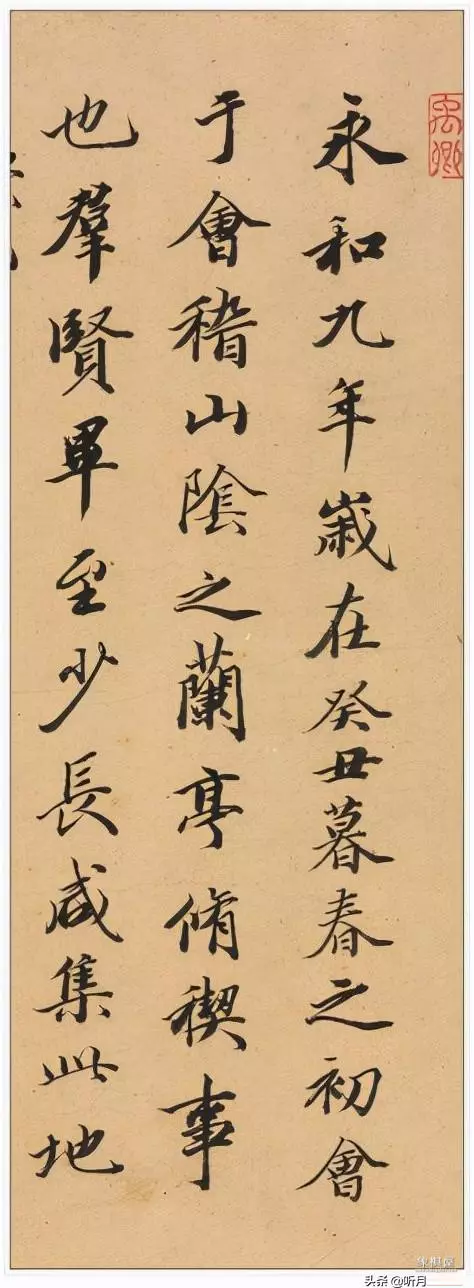 禹卿
永和九年歲在癸丑暮春之初會
于會稽山陰之蘭亭脩稧事
也羣賢畢至少長咸集此地
头条@听月